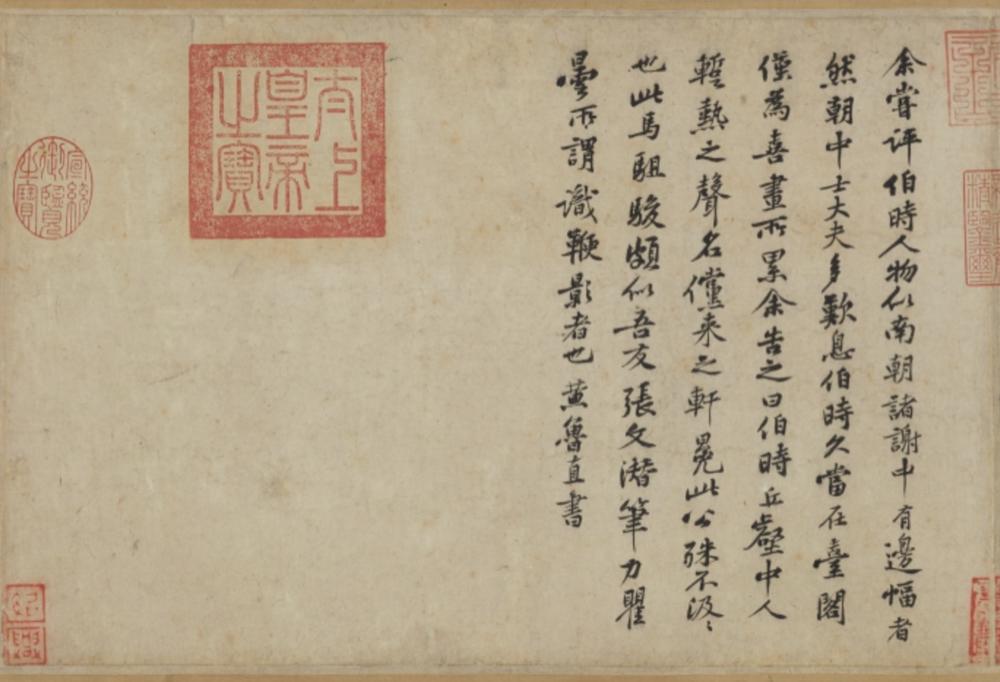 余嘗評伯時人物似南朝諸謝中有邊幅者
然朝中士大夫多歎息伯時久當在臺閣
僅為喜畫所累余告之曰伯時丘壑中人
蹔熱之聲名儻来之軒冕此公殊不汲〻
也此馬駔駿頗似吾友張文潛筆力瞿
曇所謂識鞭影者也黃魯直書
太上
皇帝
之寶
宣統
御覽
之寶